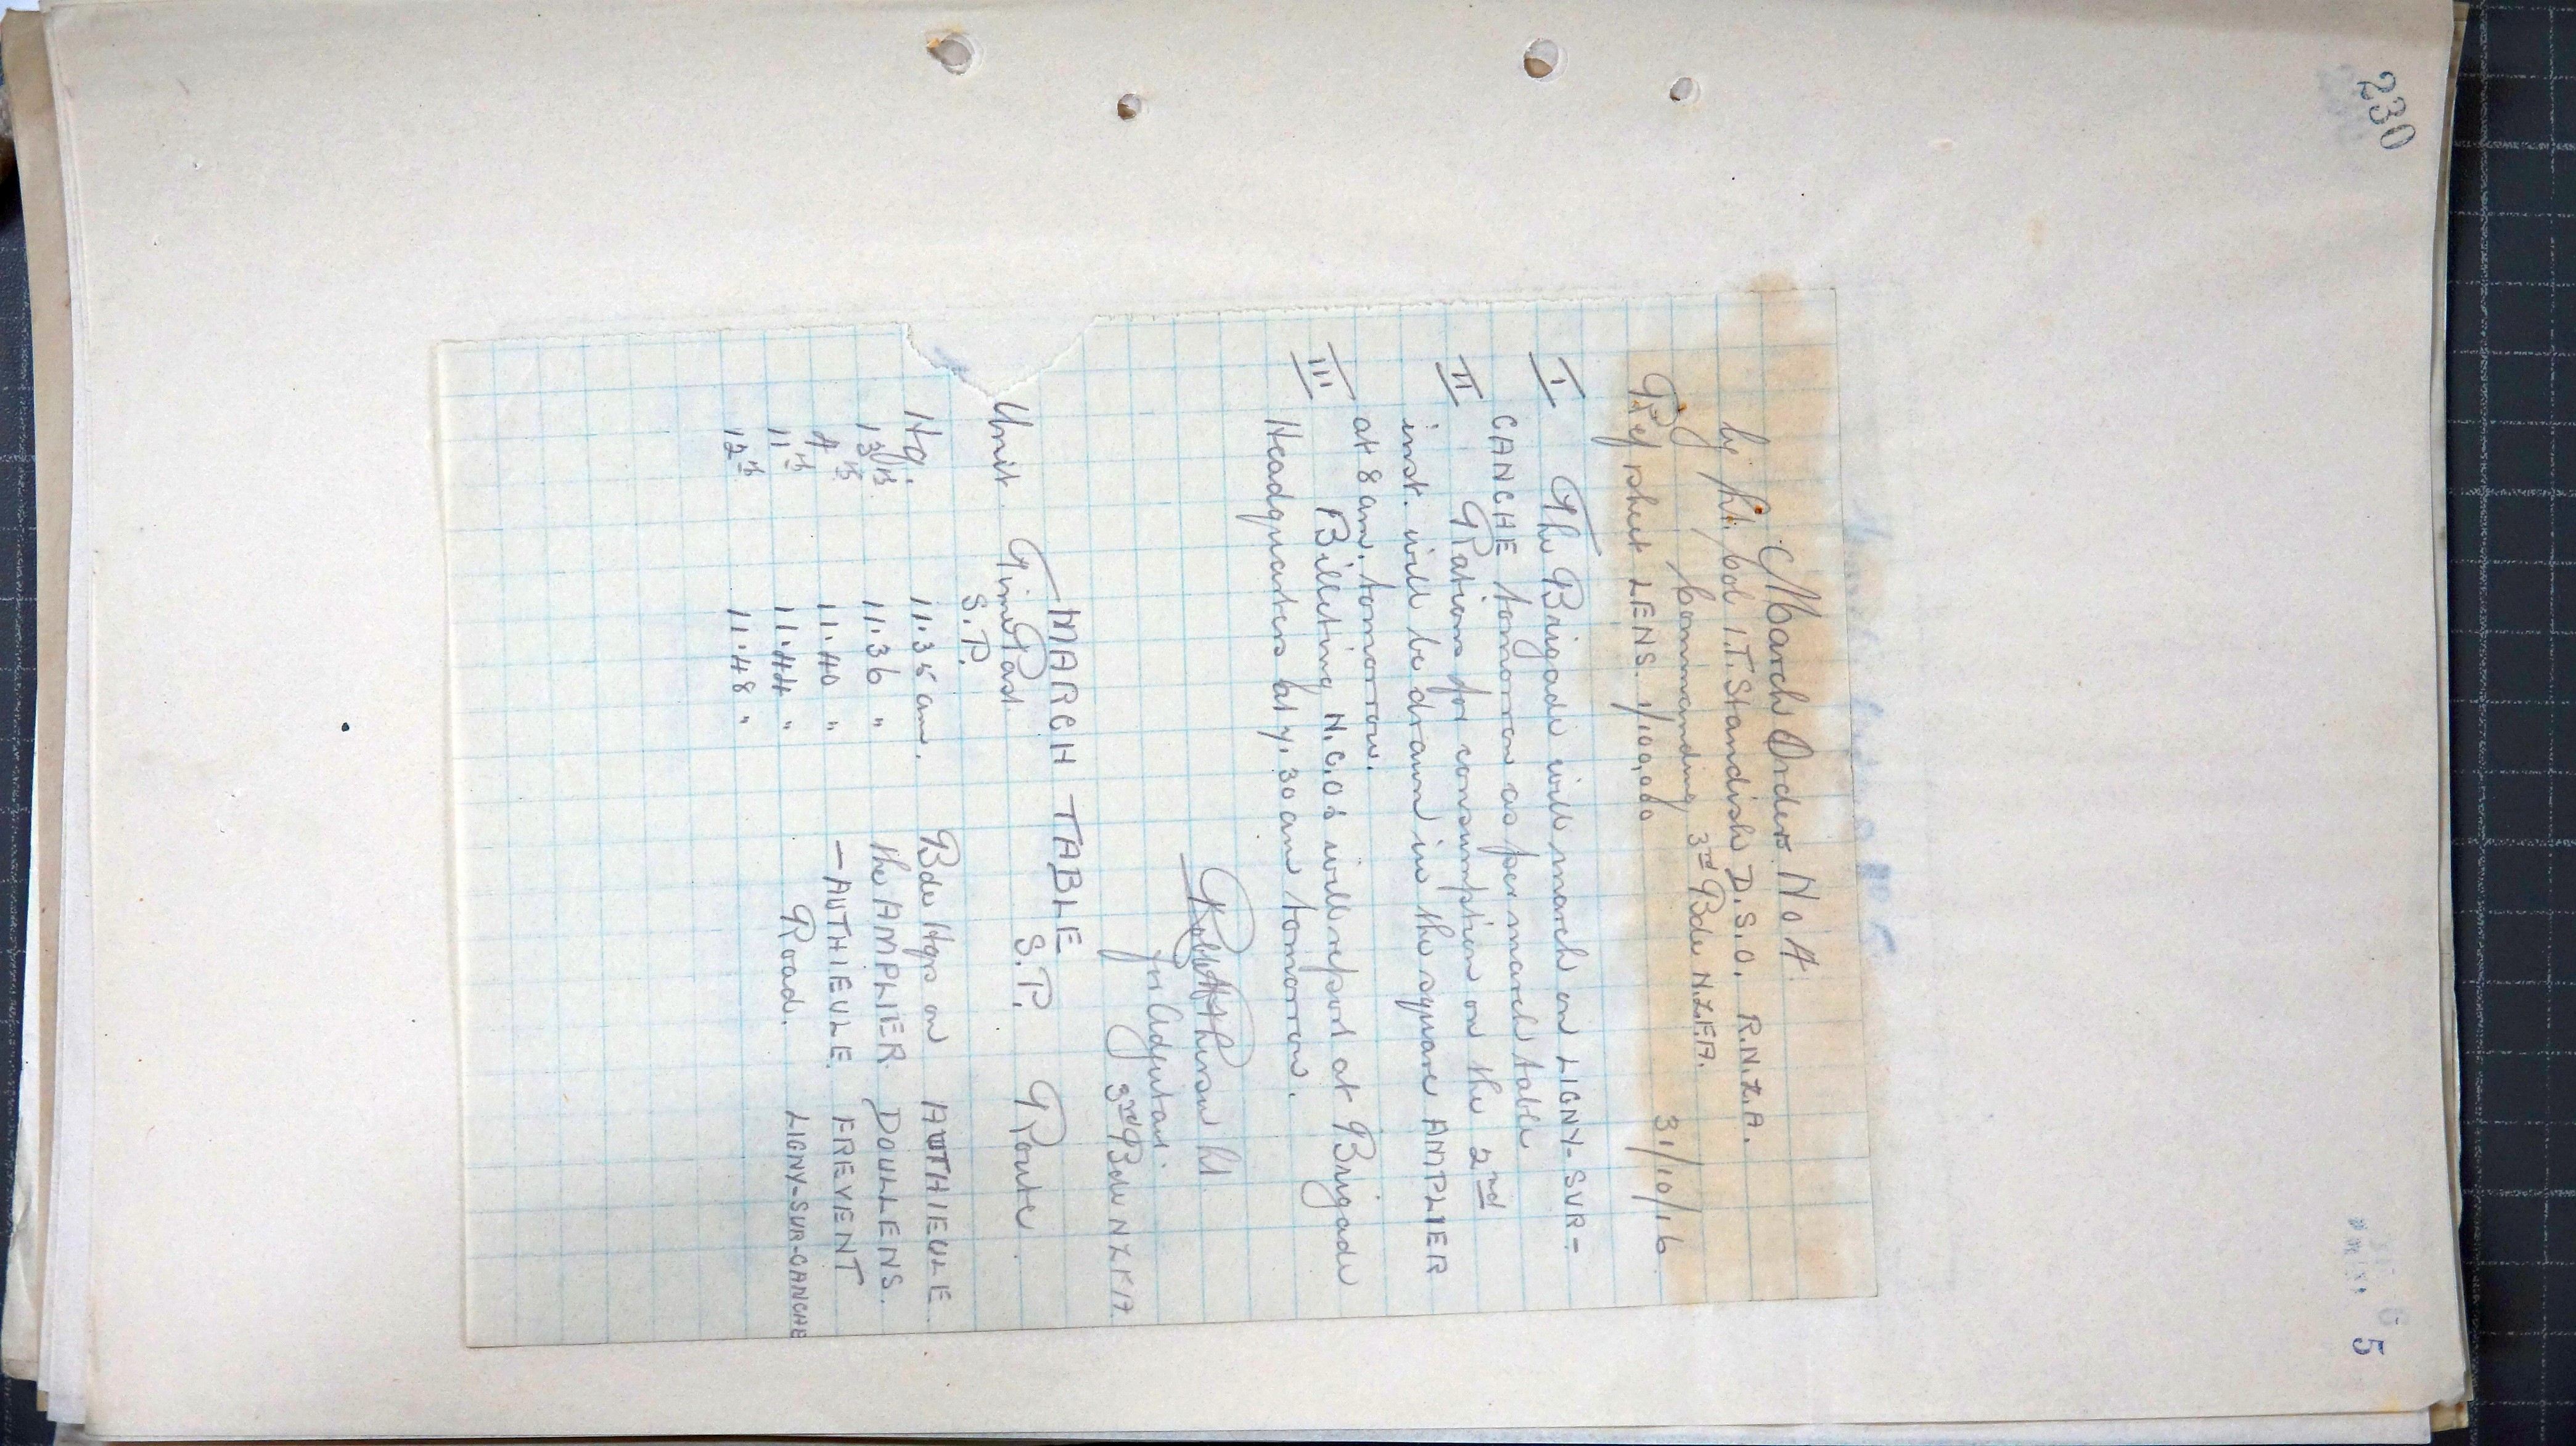 230
5
March Orders No 4.
by Lt. Col I.T. Standish D.S.O. R.N.Z.A.
Commanding 3rd Bde N.Z.F.A.
Ref sheet LENS. 1/100,000 31/10/16
I The Brigade will march on LIGNY-SUR-
CANCHE tomorrow as per march table
II Rations for consumption on the 2nd
inst. will be drawn in the square AMPLIER
at 8 am. tomorrow.
III Billeting N.C.Os will report at Brigade
Headquarters at 7.30 am tomorrow.
Lt.
for Adjutant.
3rd Bde NZFA.
MARCH TABLE
Unit Time Past S.P. Route.
S.P.
Hq. 11.35 am. Bde Hqs on AUTHIEULE.
13th 11.36 " the AMPLIER DOULLENS.
4th 11.40 " - AUTHIEULE FREVENT
11th 11.44 " Road. LIGNY-SUR-CANCHE
12th 11.48 "